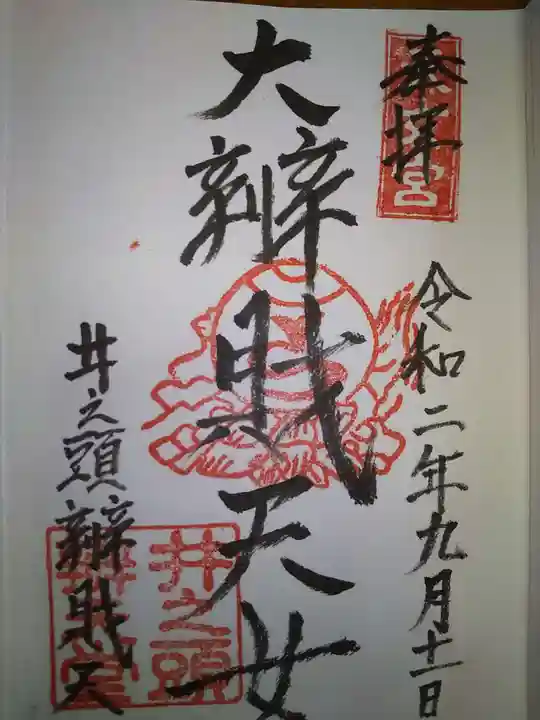 奉拝
宮
令和二年九月十一日
大辨財天女
井之頭辨財天
井之頭
堂